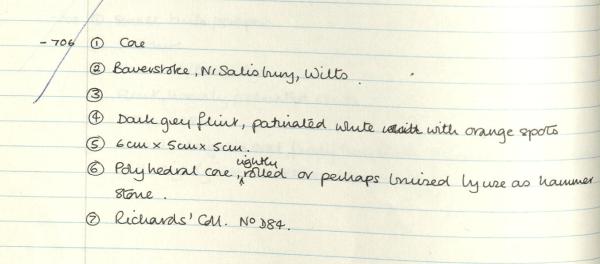 - 706 ① Core
② Baverstoke, Nr Salisbury, Wilts.
③
④ Dark grey flint, patinated white with orange spots
⑤ 6cm x 5cm x 5cm.
⑥ Polyhedral core, lightly rolled or perhaps bruised by use as hammer
stone.
⑦ Richards' Coll. No D84.